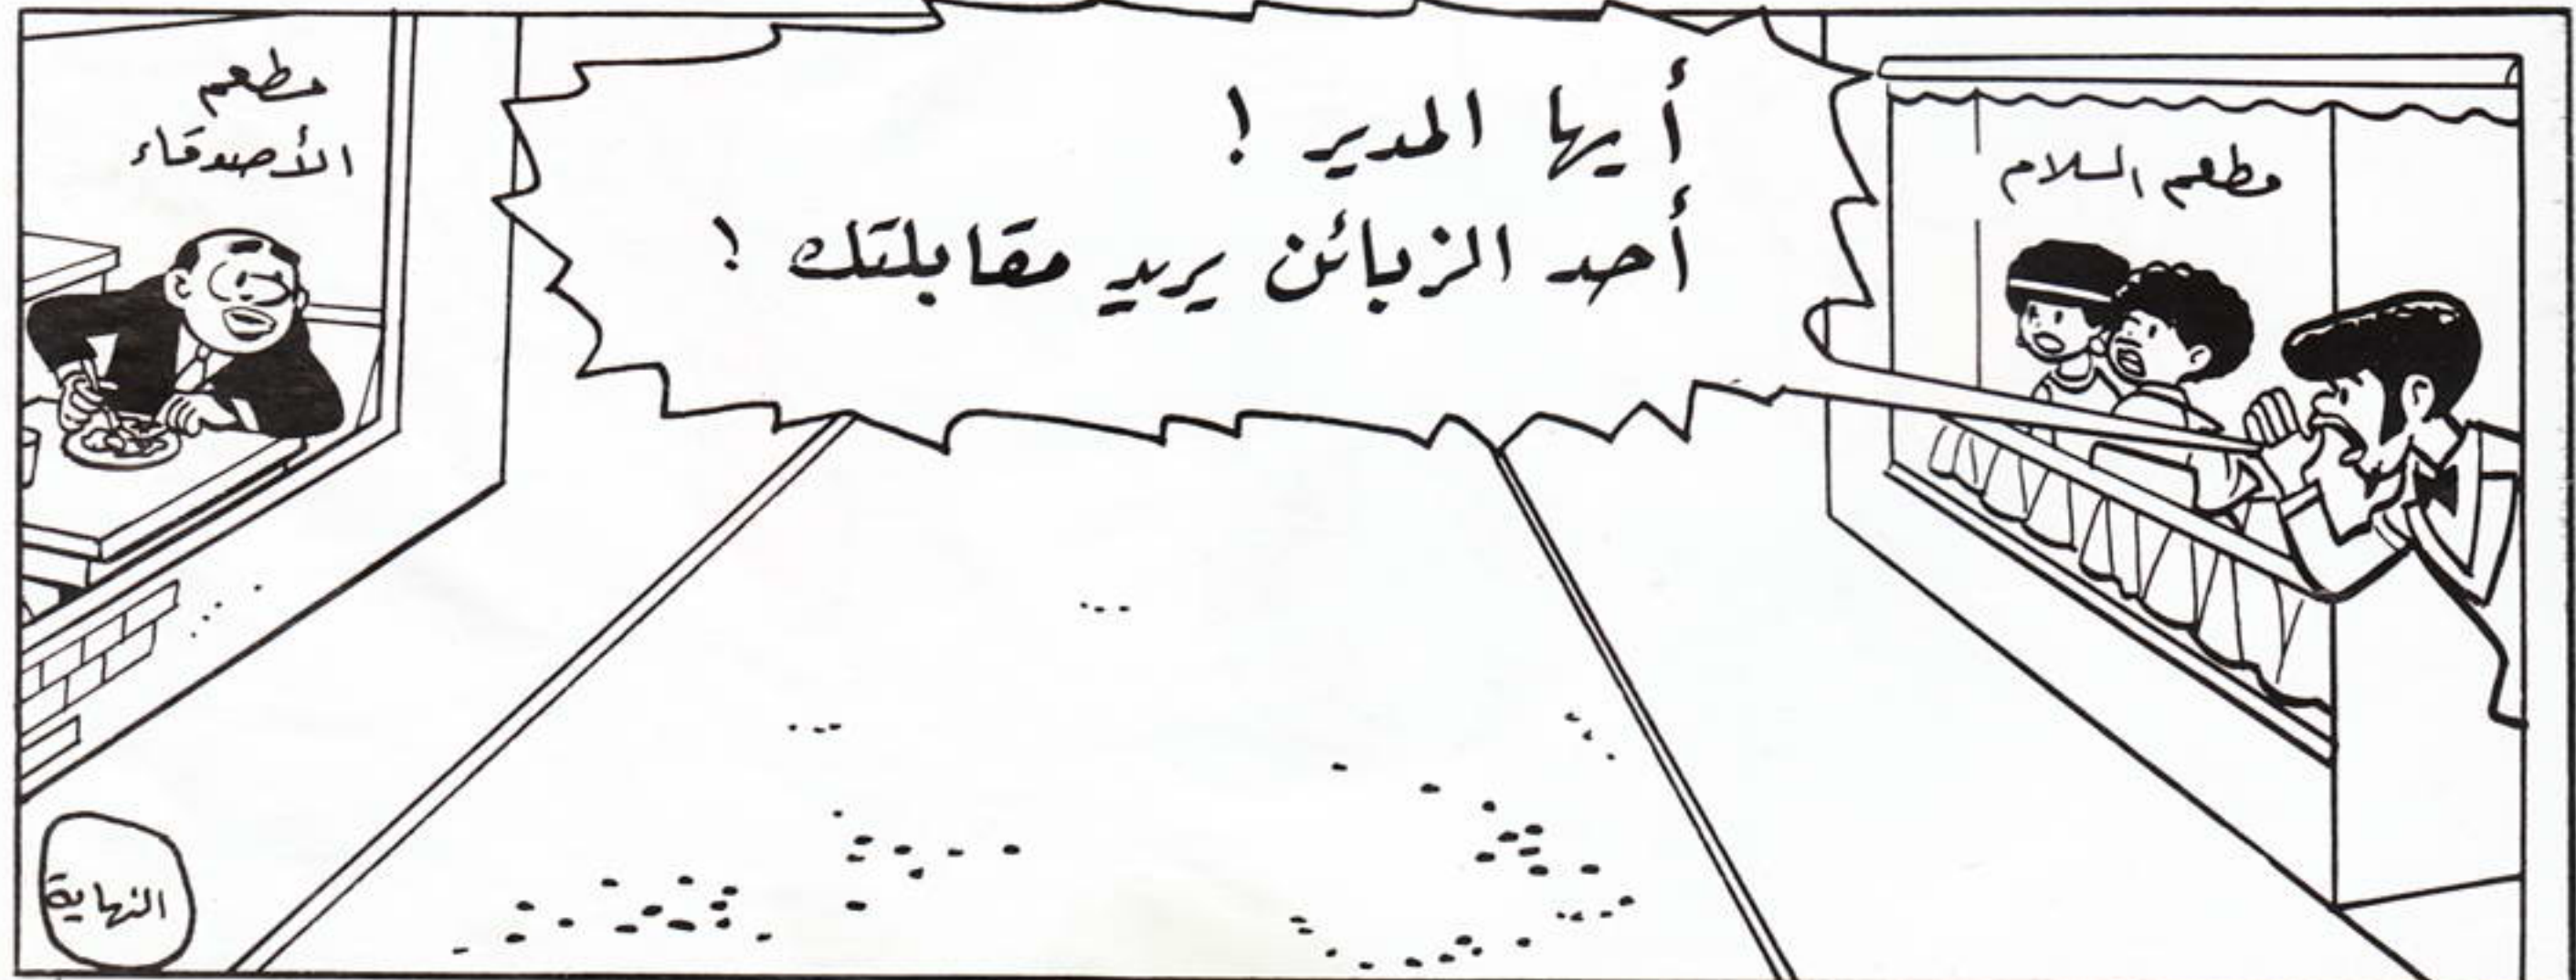 مطعم السلام
أيها المدير !
أحد الزبائن يريد مقابلتك !
مطعم
الأصدقاء
النهاية